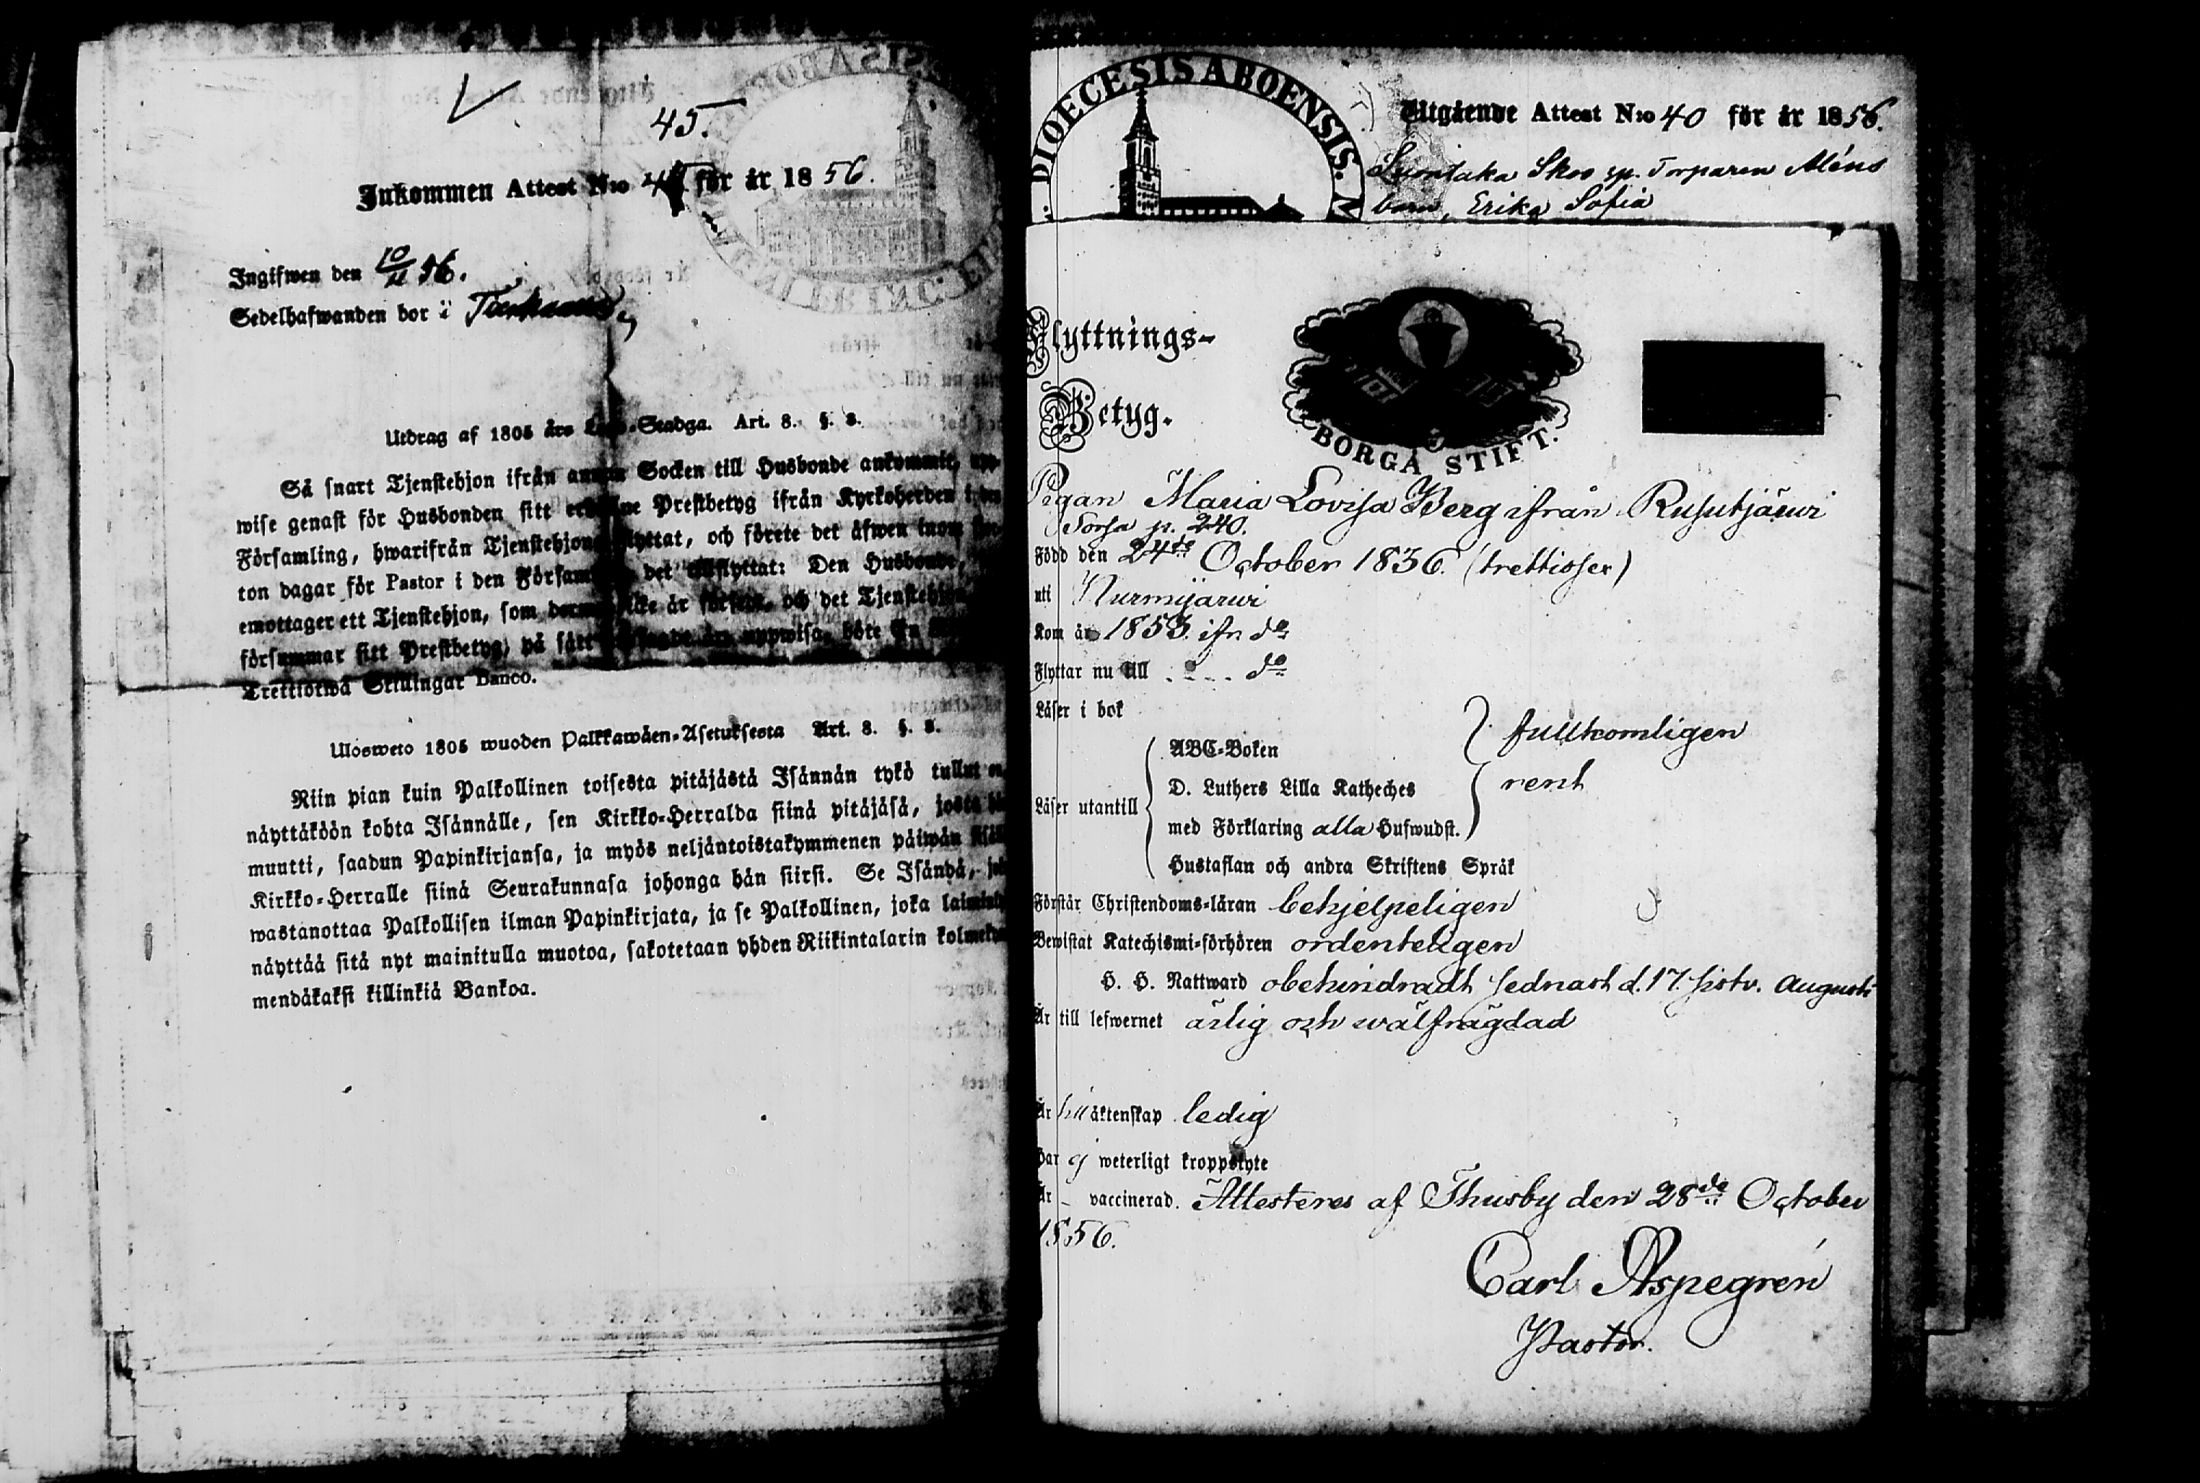 45.
Inkommen Attest N:o för år 1856.
Ingifwen den 10/11 56.
Sedelhafwanden bor i
Utdrag af 1805 års Lego-Stadga. Art. 8. §. 8.
Så snart Tjenstehjon ifrån annan Socken till Husbonde ankommit, upp-
wise genast för Husbonden sitt erhållne Prestbetyg ifrån Kyrkoherden i den
Församling, hwarifrån Tjenstehjonet flyttat, och förete det äfwen inom fjor-
ton dagar för Pastor i den Församling det tillflyttat: Den Husbonde,
emottager ett Tjenstehjon, som dermed icke är försedt, och det Tjenstehjon
försummar sitt Prestbetyg, på sätt uppwisa, böte En
Trettiotwå Skillingar Banco.
Ulosweto 1805 wuoden Palkkawäen-Asetuksesta Art. 8. §. 8.
Niin pian kuin Palkollinen toisesta pitäjästä Isännän tykö tullut on,
näyttäköön kohta Isännälle, sen Kirkko-Herralda siinä pitäjäsä, josta hän
muutti, saadun Papinkirjansa, ja myös neljäntoistakymmenen päiwän sisällä
Kirkko-Herralle siinä Seurakunnasa johonga hän siirsi. Se Isändä, joka
wastanottaa Palkollisen ilman Papinkirjata, ja se Palkollinen, joka laiminlyö
näyttää sitä nyt mainitulla muotoa, sakotetaan yhden Riikintalarin kolmekym-
mendäkaksi killinkiä Bankoa.
DIOECESIS ABOENSIS.
Utgående Attest N:o 40 för år 1856.
Skos sp. Torparen Aléns
barn, Erika Sofia
Flyttnings-
Betyg.
BORGÅ STIFT.
Pigan Maria Lovisa Berg ifrån Rusutjärwi
Sorsa p. 240.
Född den 24de October 1836. (trettiosex)
uti Nurmijärwi
Kom år 1853. ifr. do
Flyttar nu till . . . . do
Läser i bok fullkomligen
ABC-Boken
D. Luthers Lilla Katheches rent
Läser utantill
med Förklaring alla Hufwudst.
Hustaflan och andra Skriftens Språk
Förstår Christendoms-läran behjelpeligen
Bewistat Katechismi-förhören ordenteligen
H. H. Nattward obehindradt sednast d. 17. sistv. Augusti
Är till lefwernet ärlig och wälfrägdad
Är till äktenskap ledig
Har ej weterligt kroppslyte
Är - vaccinerad. Attesteres af Thusby den 28de October
1856.
Carl Aspegrén
Pastor.